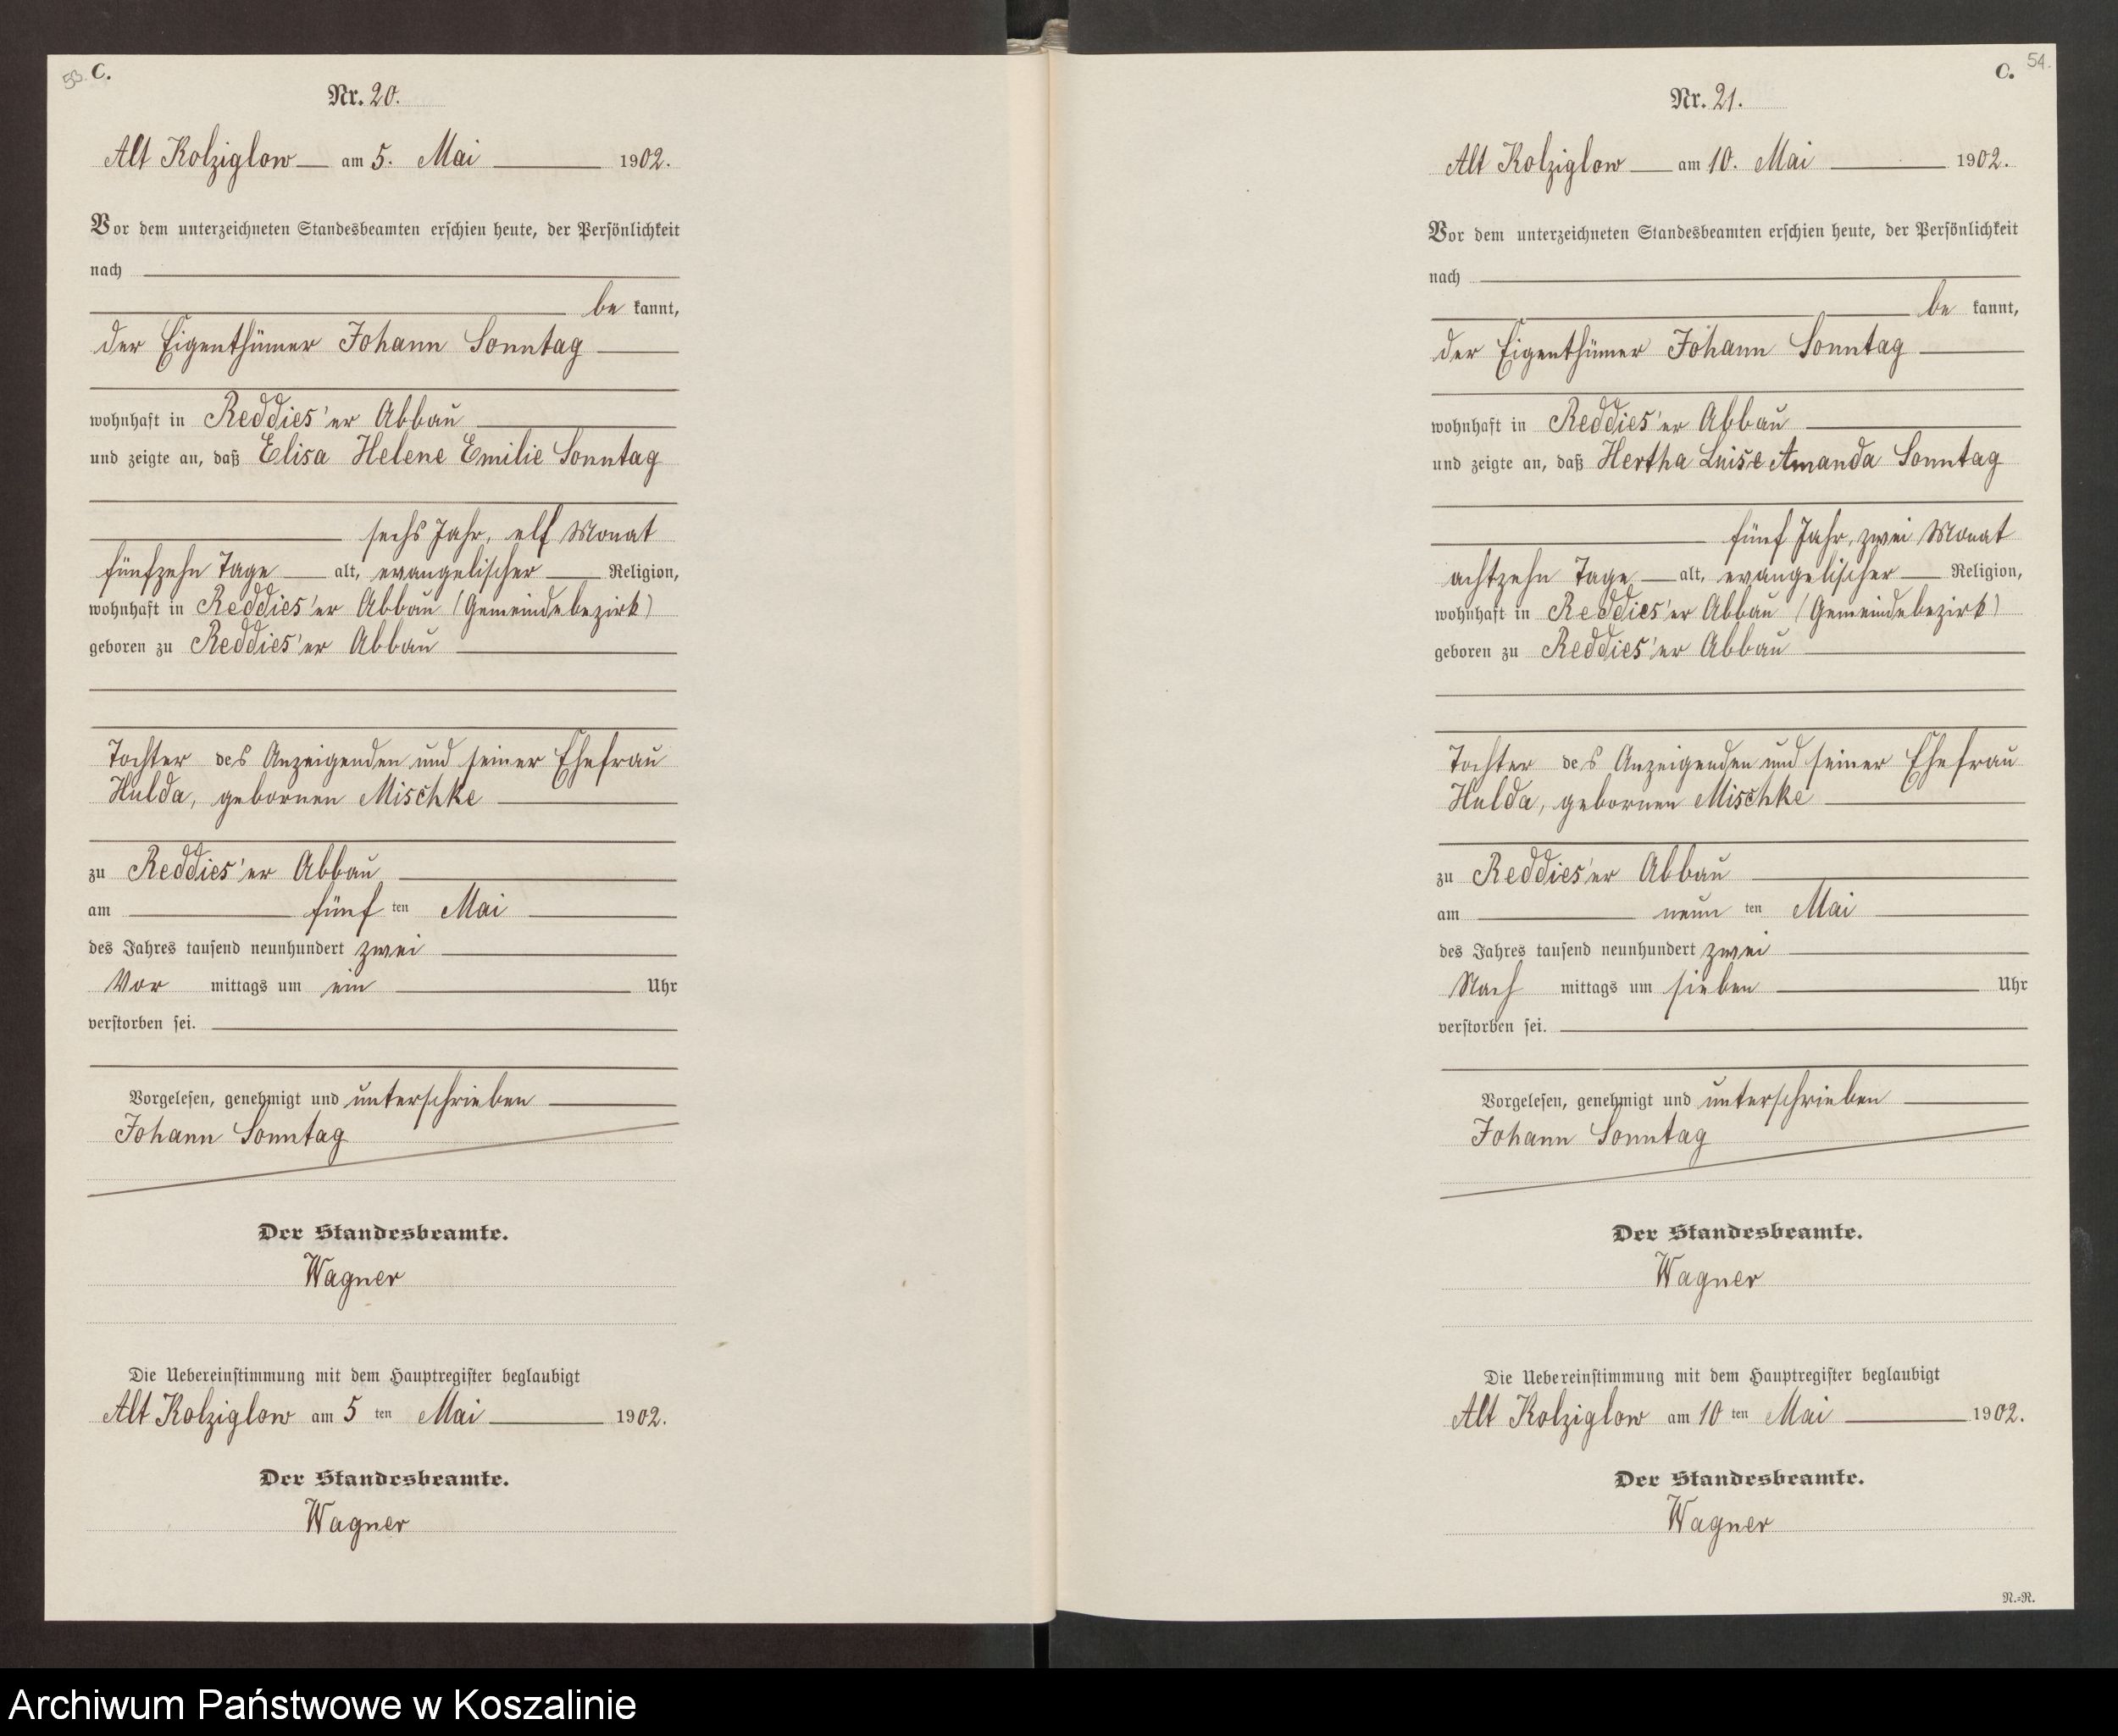 53. C.
Nr. 20.
Alt Kolziglow am 5. Mai 1902.
Vor dem unterzeichneten Standesbeamten erschien heute, der Persönlichkeit
nach
be kannt,
der Eigenthümer Johann Sonntag
wohnhaft in Reddies'er Abbau
und zeigte an, daß Elisa Helene Emilie Sonntag
sechs Jahr, elf Monat
fünfzehn Tage alt, evangelischer Religion,
wohnhaft in Reddies'er Abbau (Gemeindebezirk)
geboren zu Reddies'er Abbau
Tochter des Anzeigenden und seiner Ehefrau
Hulda, gebornen Mischke
zu Reddies'er Abbau
am fünf ten Mai
des Jahres tausend neunhundert zwei
Vor mittags um ein Uhr
verstorben sei.
Vorgelesen, genehmigt und unterschrieben
Johann Sonntag
Der Standesbeamte.
Wagner
Die Uebereinstimmung mit dem Hauptregister beglaubigt
Alt Kolziglow am 5 ten Mai 1902.
Der Standesbeamte.
Wagner
C. 54.
Nr. 21.
Alt Kolziglow am 10. Mai 1902.
Vor dem unterzeichneten Standesbeamten erschien heute, der Persönlichkeit
nach
be kannt,
der Eigenthümer Johann Sonntag
wohnhaft in Reddies'er Abbau
und zeigte an, daß Hertha Luise Amanda Sonntag
fünf Jahr, zwei Monat
achtzehn Tage alt, evangelischer Religion,
wohnhaft in Reddies'er Abbau (Gemeindebezirk)
geboren zu Reddies'er Abbau
Tochter des Anzeigenden und seiner Ehefrau
Hulda, gebornen Mischke
zu Reddies'er Abbau
am neun ten Mai
des Jahres tausend neunhundert zwei
Nach mittags um sieben Uhr
verstorben sei.
Vorgelesen, genehmigt und unterschrieben
Johann Sonntag
Der Standesbeamte.
Wagner
Die Uebereinstimmung mit dem Hauptregister beglaubigt
Alt Kolziglow am 10 ten Mai 1902.
Der Standesbeamte.
Wagner
N.=R.
Archiwum Państwowe w Koszalinie